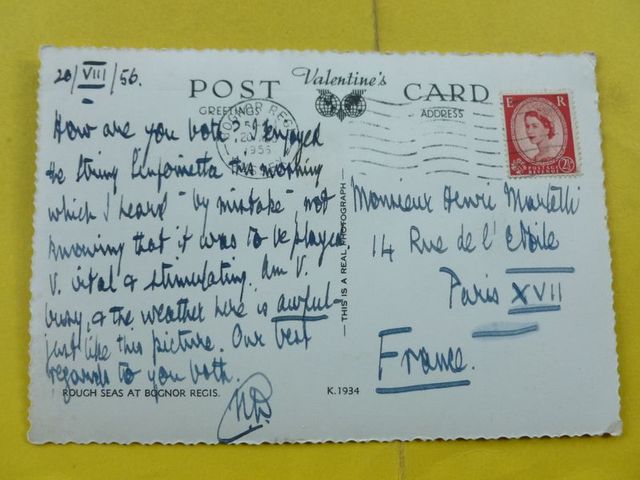 20/VIII/56.
POST Valentine's CARD
GREETINGS
ADDRESS
BOGNOR REGIS
1956
E R
POSTAGE REVENUE
2½
How are you both. I enjoyed
the String Sinfonietta this morning
which I heard "by mistake" not
knowing that it was to be played
V. vital & stimulating. Am V.
busy, & the weather here is awful -
just like this picture. Our best
regards to you both.
ND
THIS IS A REAL PHOTOGRAPH
Monsieur Henri Martelli
14 Rue de l'Etoile
Paris XVII
France.
ROUGH SEAS AT BOGNOR REGIS.
K.1934